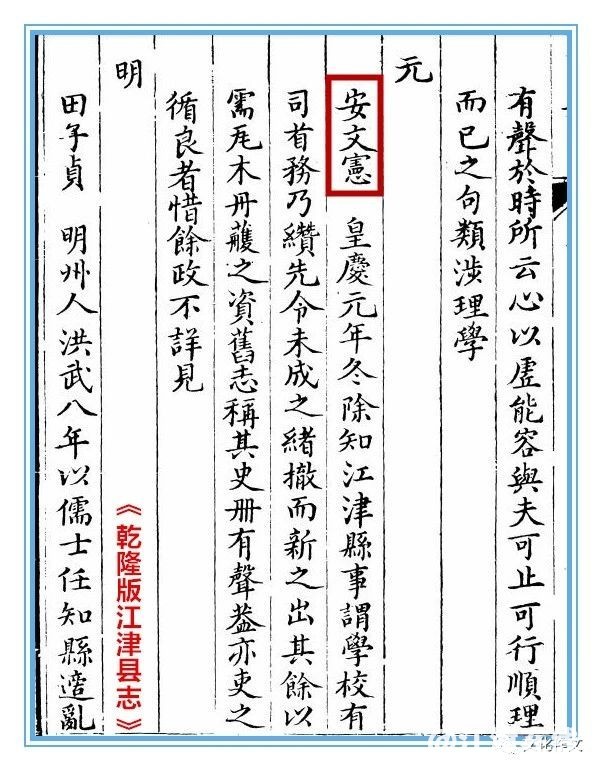 有聲於時所云心以虛能容與夫可止可行順理
而已之句類涉理學
元
安文憲 皇慶元年冬除知江津縣事謂學校有
司首務乃纘先令未成之緒撤而新之出其餘以
需瓦木丹雘之資舊志稱其史冊有聲蓋亦吏之
循良者惜餘政不詳見
明
《乾隆版江津县志》
田子貞 明州人洪武八年以儒士任知縣遭亂